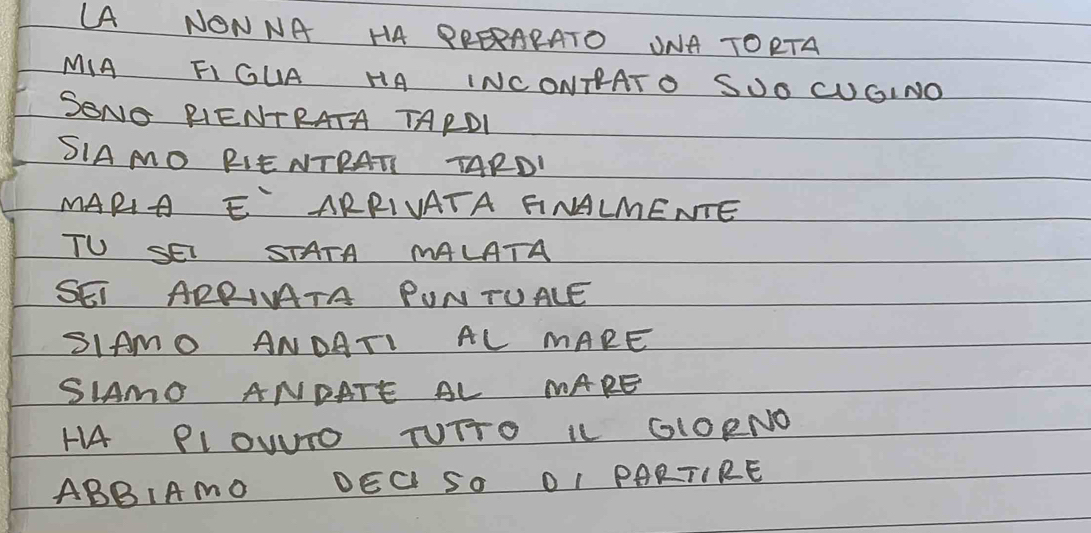 LA NONNA HA PREPARATO UNA TORTA
MIA FIGLIA HA INCONTRATO SUO CUGINO
SONO RIENTRATA TARDI
SIAMO RIENTRATI TARDI
MARIA E` ARRIVATA FINALMENTE
TU SEI STATA MALATA
SEI ARRIVATA PUNTUALE
SIAMO ANDATI AL MARE
SIAMO ANDATE AL MARE
HA PIOVUTO TUTTO IL GIORNO
ABBIAMO DECISO DI PARTIRE